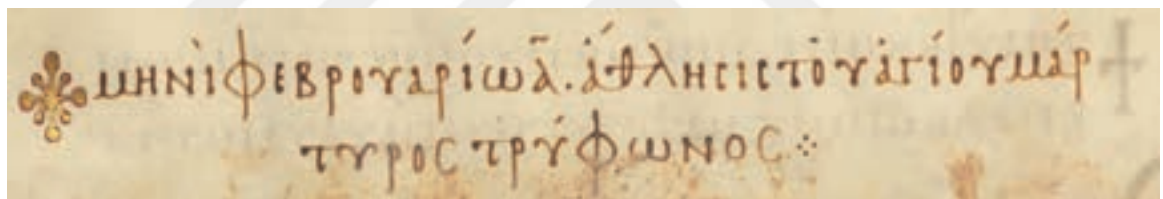 μηνὶ φεβρουαρίω ᾱ. ἄθλησις τοῦ ἁγίου μάρ
τυρος τρύφωνος ⁘